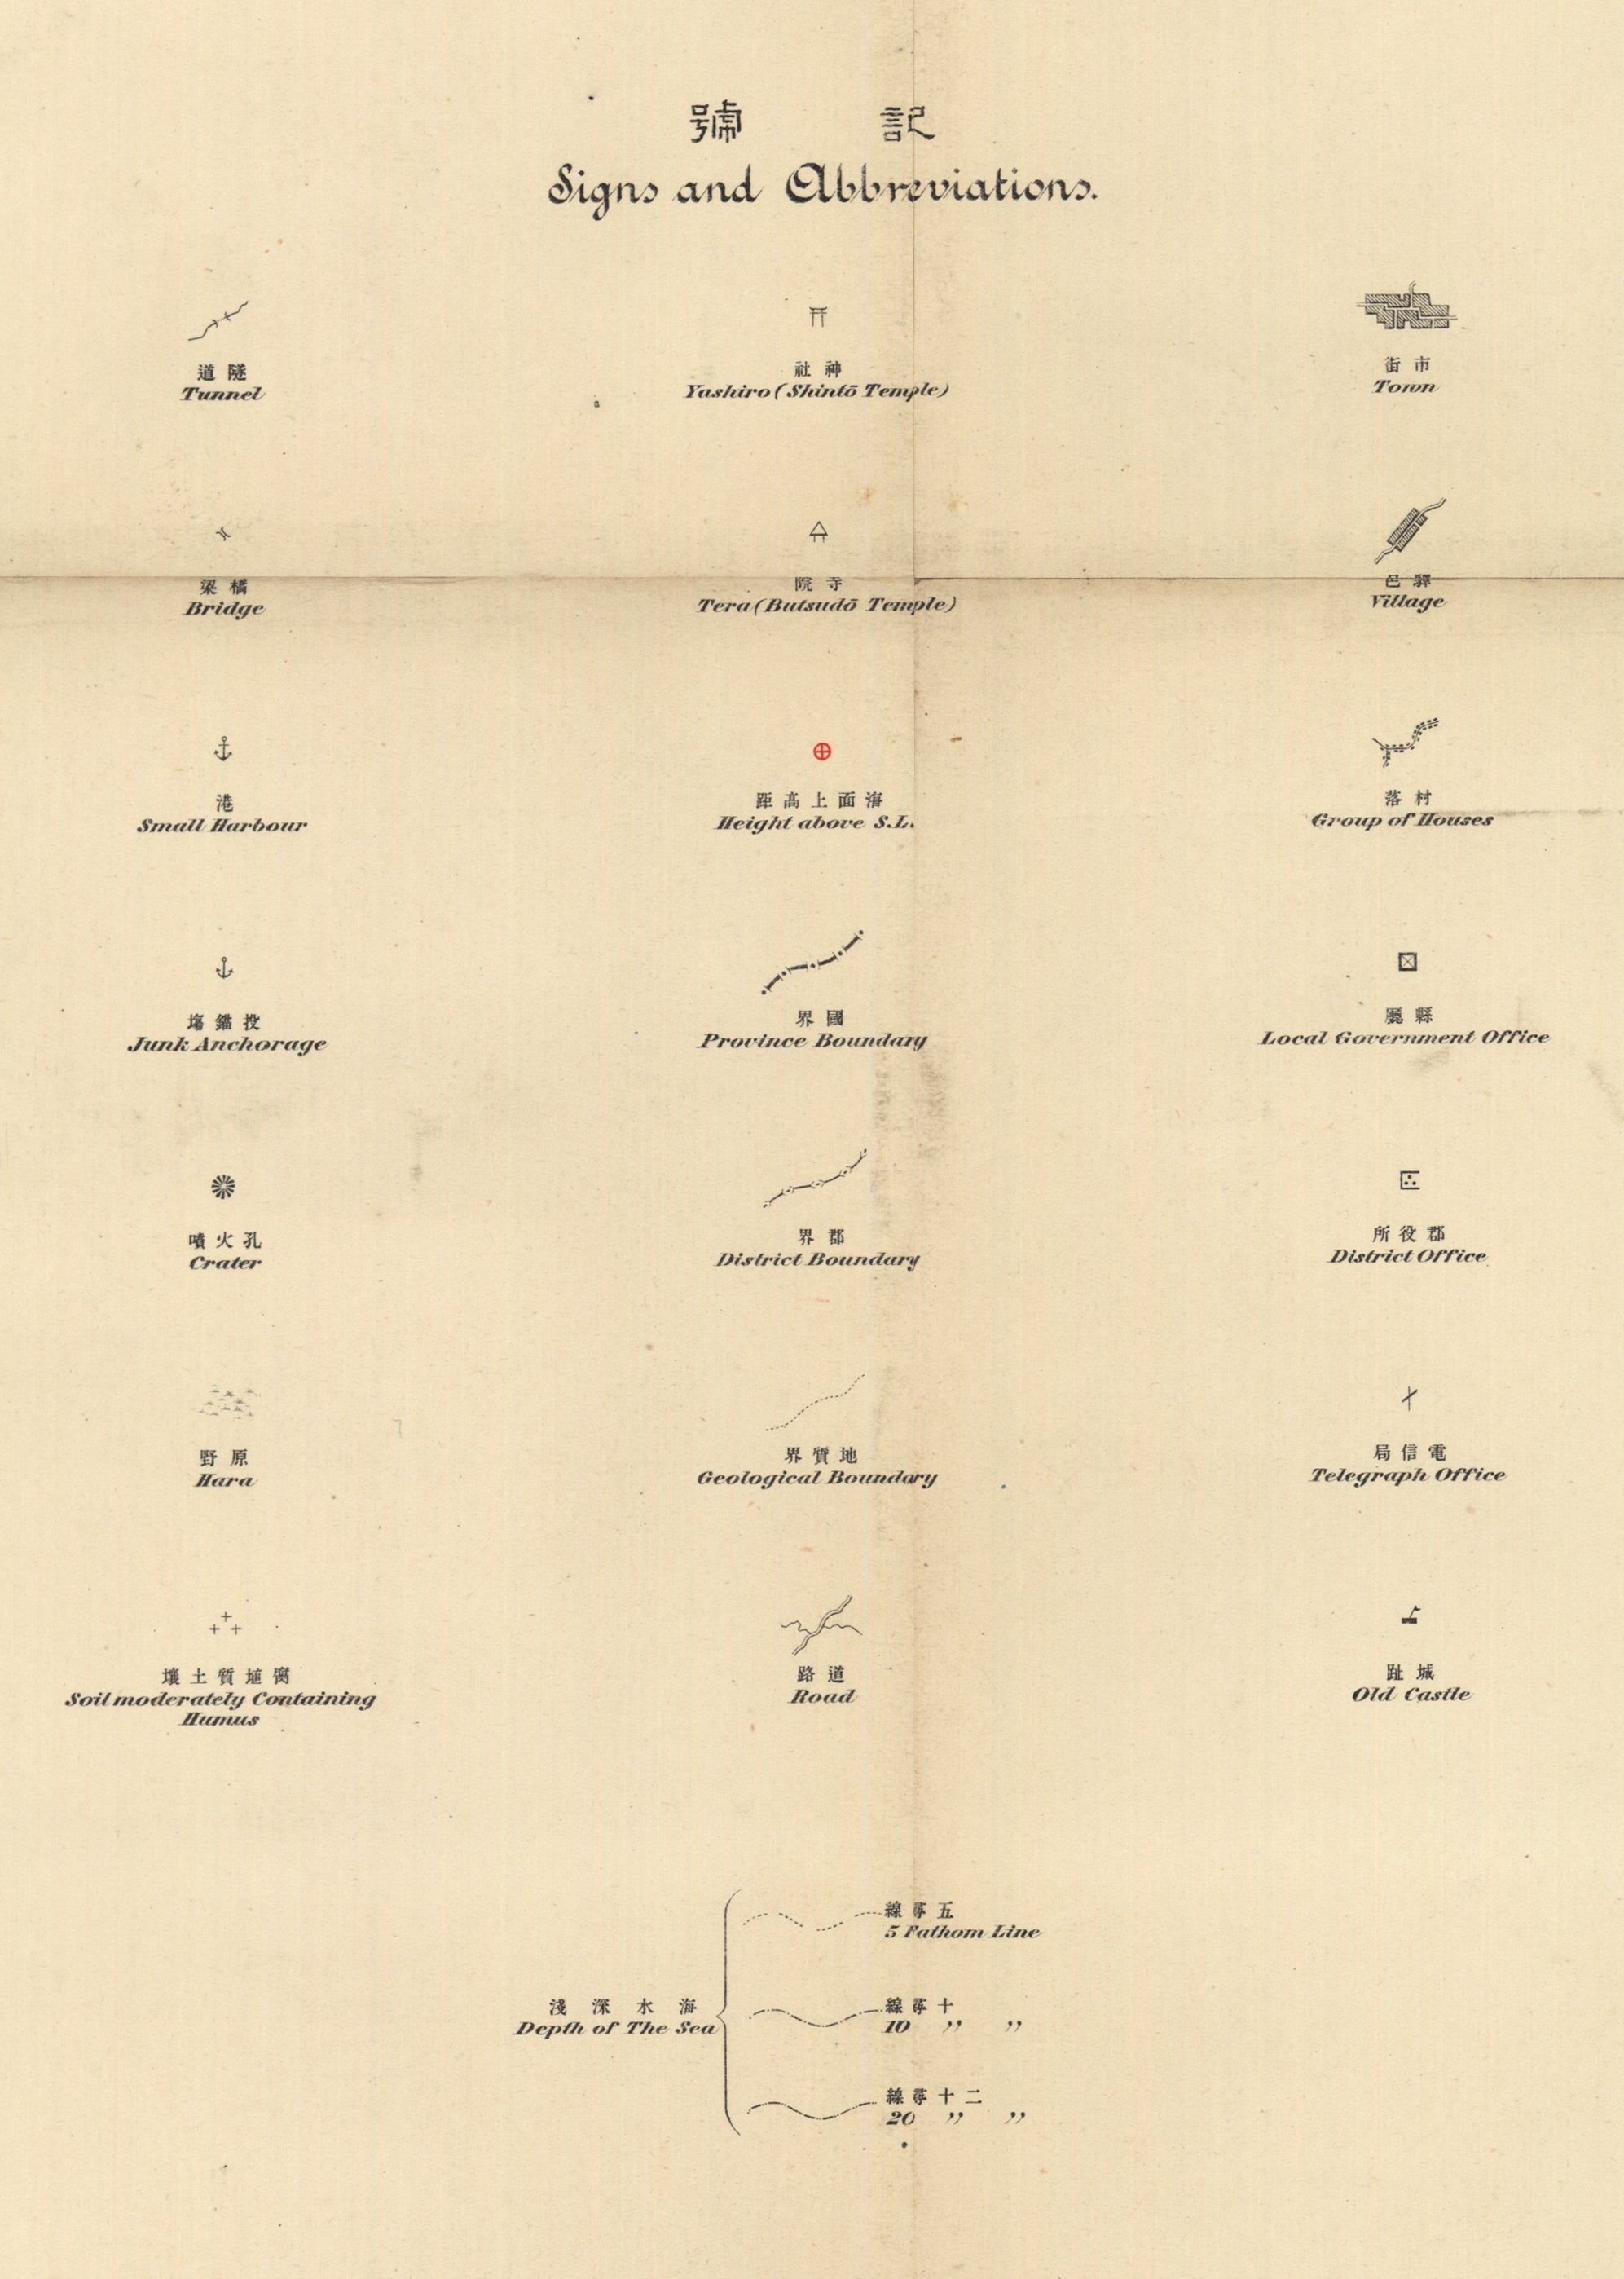 記號
Signs and Abbreviations.
隧道
Tunnel
神社
Yashiro (Shintō Temple)
市街
Town
橋梁
Bridge
寺院
Tera (Butsudō Temple)
驛邑
Village
港
Small Harbour
海面上高距
Height above S.L.
村落
Group of Houses
投錨塲
Junk Anchorage
國界
Province Boundary
縣廳
Local Government Office
噴火孔
Crater
郡界
District Boundary
郡役所
District Office
原野
Hara
地質界
Geological Boundary
電信局
Telegraph Office
腐埴質土壤
Soil moderately Containing
Humus
道路
Road
城趾
Old Castle
海水深淺
Depth of The Sea
五尋線
5 Fathom Line
十尋線
10 〃 〃
二十尋線
20 〃 〃